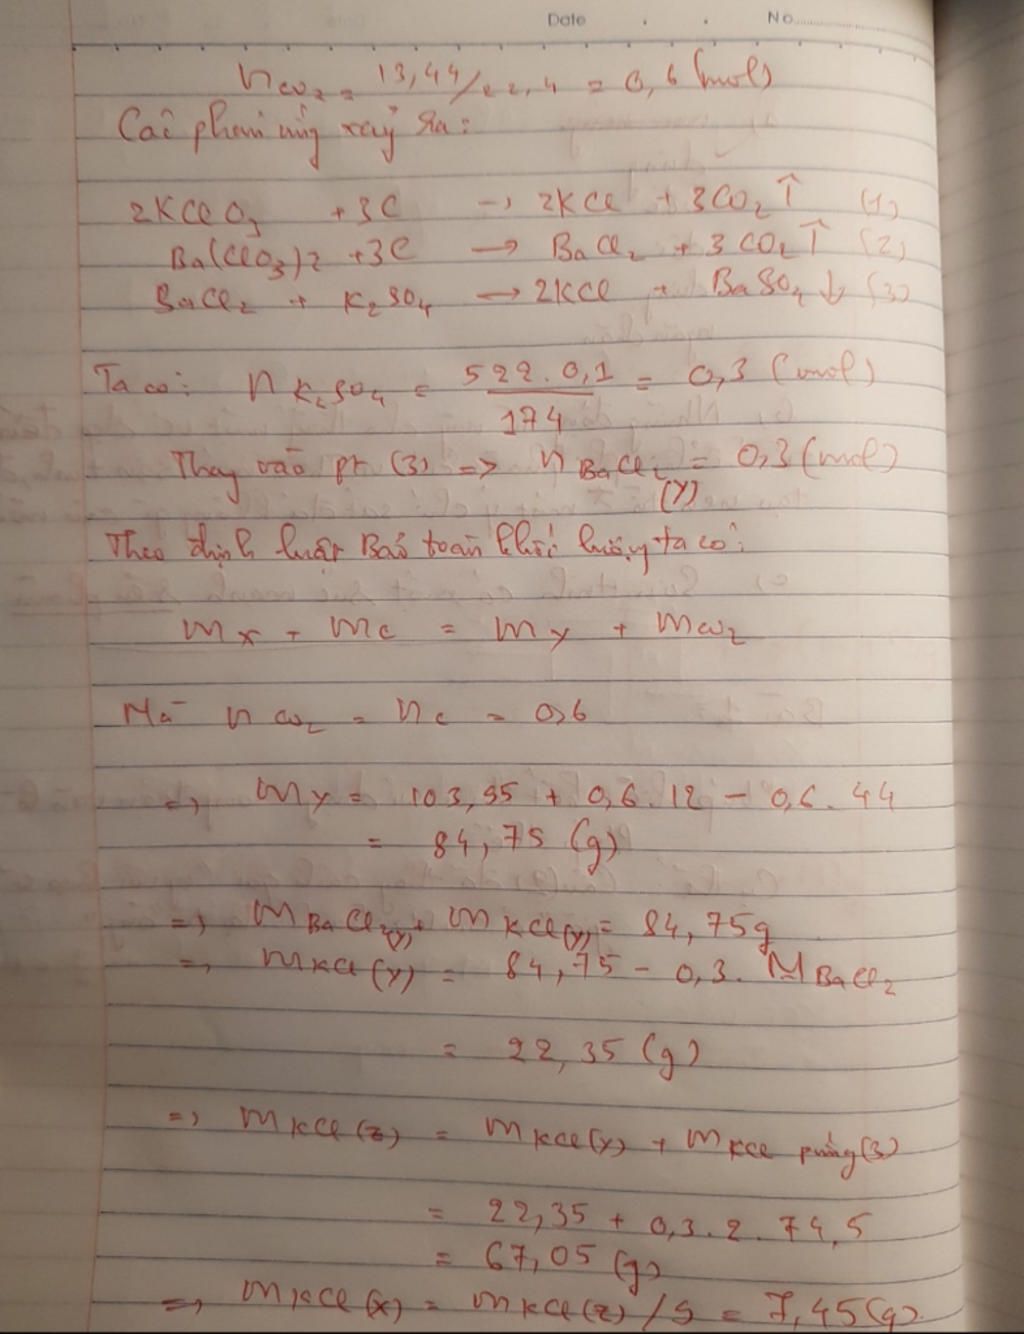 Date . . No
nCO₂ = 13,44/22,4 = 0,6 (mol)
Các phản ứng xảy ra:
2KClO₃ + 3C → 2KCl + 3CO₂↑ (1)
Ba(ClO₃)2 + 3C → BaCl₂ + 3CO₂↑ (2)
BaCl₂ + K₂SO₄ → 2KCl + BaSO₄↓ (3)
Ta có: nK₂SO₄ = 522.0,1/174 = 0,3 (mol)
Thay vào pt (3) => nBaCl₂ (Y) = 0,3 (mol)
Theo định luật Bảo toàn khối lượng ta có:
mX + mC = mY + mCO₂
Mà nCO₂ = nC = 0,6
=> mY = 103,95 + 0,6.12 - 0,6.44
= 84,75 (g)
=> mBaCl₂(Y) + mKCl(Y) = 84,75g
=> mKCl(Y) = 84,75 - 0,3.MBaCl₂
= 22,35 (g)
=> mKCl(Z) = mKCl(Y) + mKCl pứng(3)
= 22,35 + 0,3.2.74,5
= 67,05 (g)
=> mKCl(X) = mKCl(Z)/9 = 7,45(g).